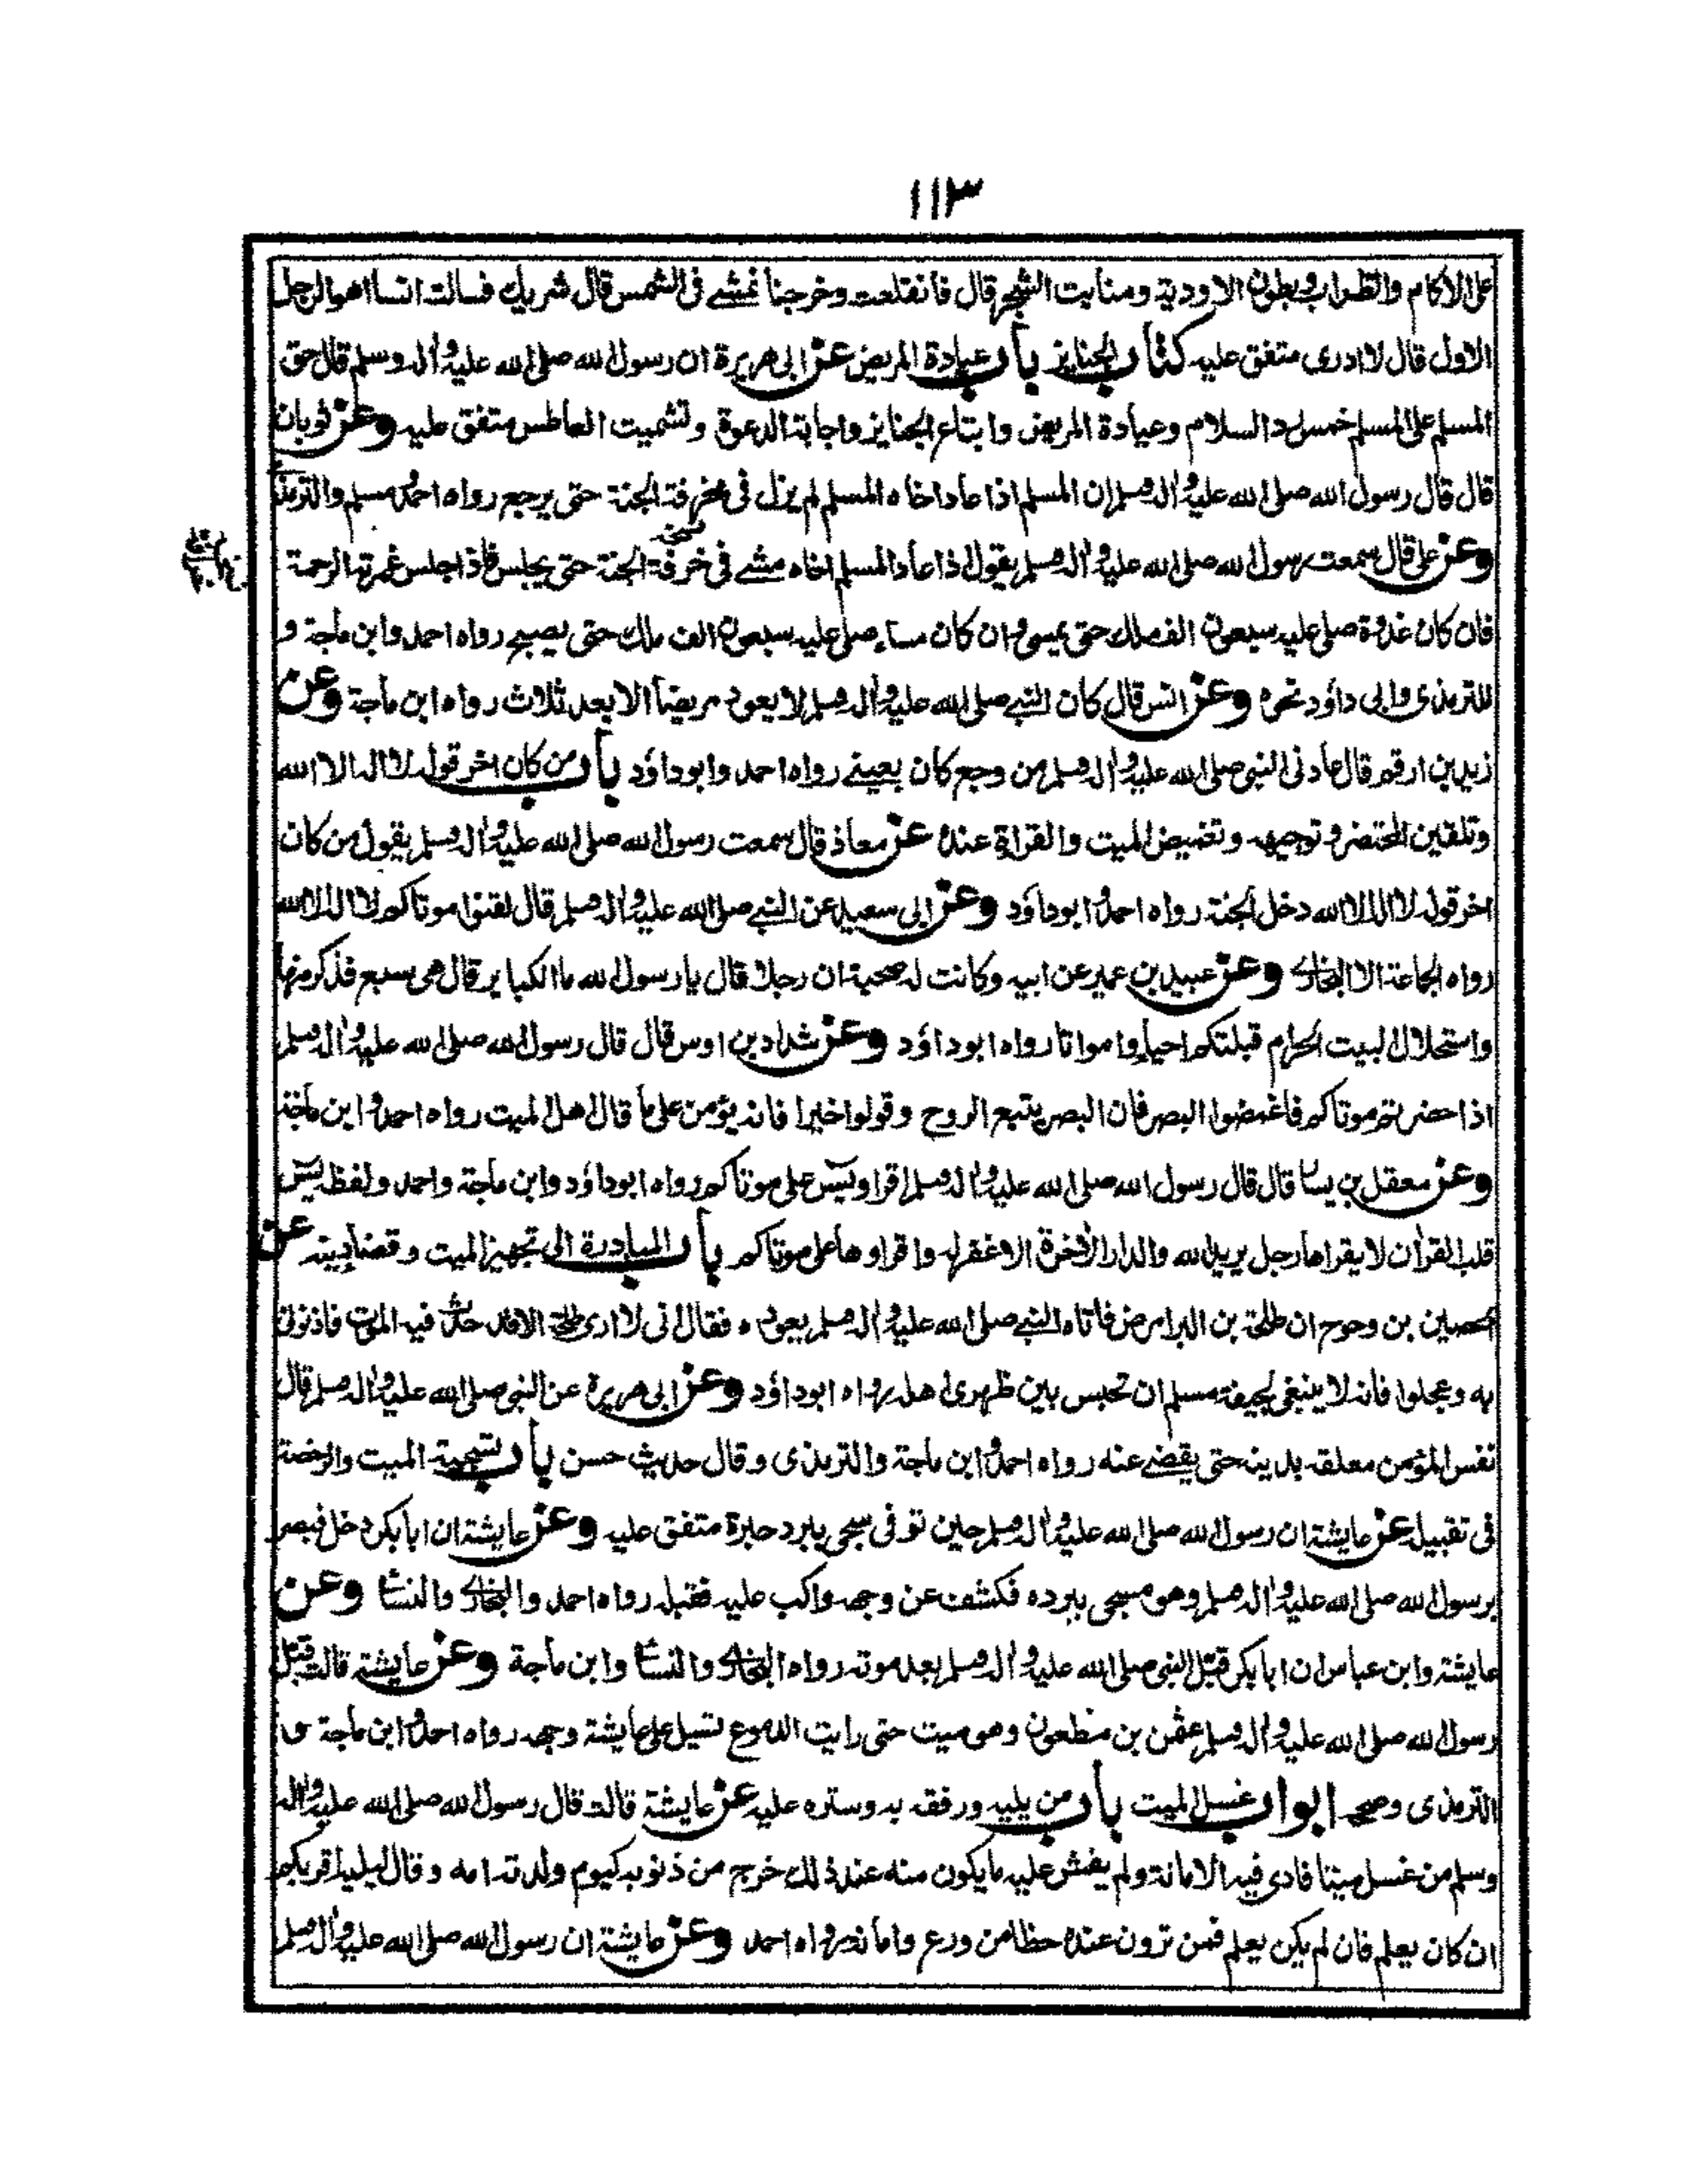 ١١٣
على الاكام والظراب وبطون الاودية ومنابت الشجر قال فانقلعت وخرجنا نمشے فی الشمس قال شريك فسالت انسا اهو الرجل
الاول قال لا ادرى متفق عليه كتاب الجنايز باب عيادة المريض عن ابى هريرة ان رسول الله صلى الله عليه واله وسلم قال حق
المسلم على المسلم خمس رد السلام وعيادة المريض واتباع الجنايز واجابة الدعوة وتشميت العاطس متفق عليه وعن ثوبان
قال قال رسول الله صلى الله عليه واله وسلم ان المسلم اذا عاد اخاه المسلم لم يزل فى مخرفة الجنة حتى يرجع رواه احمد ومسلم والترمذى
وعن على قال سمعت رسول الله صلى الله عليه واله وسلم يقول اذا عاد المسلم اخاه مشے فى خرفة الجنة حتى يجلس فاذا جلس غمرته الرحمة
فان كان غدوة صلى عليه سبعون الف ملك حتى يمسى وان كان مساء صلى عليه سبعون الف ملك حتى يصبح رواه احمد وابن ماجة و
للترمذى وابى داؤد نحوه وعن انس قال كان النبے صلى الله عليه واله وسلم لا يعود مريضا الا بعد ثلاث رواه ابن ماجة وعن
زيد بن ارقم قال عادنى النبى صلى الله عليه واله وسلم من وجع كان بعينے رواه احمد وابو داؤد باب من كان اخر قوله لا اله الا الله
وتلقين المحتضر وتوجيهه وتغميض الميت والقراة عنده عن معاذ قال سمعت رسول الله صلى الله عليه واله وسلم يقول من كان
اخر قوله لا اله الا الله دخل الجنة رواه احمد وابو داؤد وعن ابى سعيد عن النبے صلى الله عليه واله وسلم قال لقنوا موتاكم لا اله الا الله
رواه الجماعة الا البخارى وعن عبيد بن عمير عن ابيه وكانت له صحبة ان رجلا قال يا رسول الله ما الكباير قال هى سبع فذكر منها
واستحلال البيت الحرام قبلتكم احياء وامواتا رواه ابو داؤد وعن شداد بن اوس قال قال رسول الله صلى الله عليه واله وسلم
اذا حضرتم موتاكم فاغمضوا البصر فان البصر يتبع الروح وقولوا خيرا فانه يؤمن على ما قال اهل الميت رواه احمد وابن ماجة
وعن معقل بن يسار قال قال رسول الله صلى الله عليه واله وسلم اقراوا يٰسٓ على موتاكم رواه ابو داؤد وابن ماجة واحمد ولفظه يٰسٓ
قلب القرأن لا يقراها رجل يريد الله والدار الاخرة الا غفر له واقراوها على موتاكم باب المبادرة الى تجهيز الميت وقضا دينه عن
الحصين بن وحوح ان طلحة بن البرا مرض فاتاه النبے صلى الله عليه واله وسلم يعوده فقال انى لا ارى طلحة الا قد حدث فيه الموت فاذنونى
به وعجلوا فانه لا ينبغى لجيفة مسلم ان تحبس بين ظهرى اهله رواه ابو داؤد وعن ابى هريرة عن النبى صلى الله عليه واله وسلم قال
نفس المؤمن معلقة بدينه حتى يقضے عنه رواه احمد وابن ماجة والترمذى وقال حديث حسن باب تسجية الميت والرخصة
فى تقبيله عن عايشة ان رسول الله صلى الله عليه واله وسلم حين توفى سجى ببرد حبرة متفق عليه وعن عايشة ان ابا بكر دخل فبصر
برسول الله صلى الله عليه واله وسلم وهو مسجى ببرده فكشف عن وجهه واكب عليه فقبله رواه احمد والبخارى والنسائى وعن
عايشة وابن عباس ان ابا بكر قبل النبى صلى الله عليه واله وسلم بعد موته رواه البخارى والنسائى وابن ماجة وعن عايشة قالت قبل
رسول الله صلى الله عليه واله وسلم عثمن بن مظعون وهو ميت حتى رايت الدموع تسيل على عايشة وجهه رواه احمد وابن ماجة و
الترمذى وصححه ابواب غسل الميت باب من يليه ورفقه به وستره عليه عن عايشة قالت قال رسول الله صلى الله عليه واله
وسلم من غسل ميتا فادى فيه الامانة ولم يفش عليه ما يكون منه عند ذلك خرج من ذنوبه كيوم ولدته امه وقال ليليه اقربكم
ان كان يعلم فان لم يكن يعلم فمن ترون عنده حظا من ورع وامانة رواه احمد وعن عايشة ان رسول الله صلى الله عليه واله وسلم